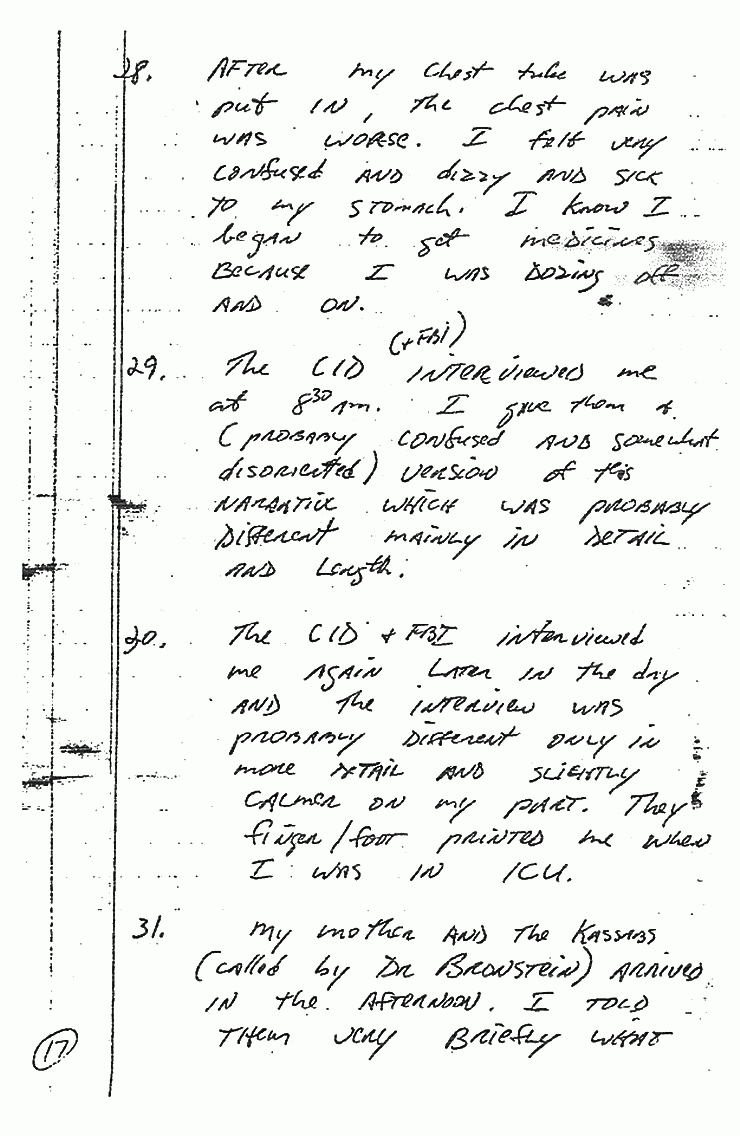 28. AFTER my chest tube was
put IN, the chest pain
was worse. I felt very
confused AND dizzy AND sick
to my stomach. I know I
began to get medicines
Because I was Dozing off
AND ON.
(+ FBI)
29. The CID INTERviewed me
at 8³⁰ Am. I gave them a
(probably confused AND somewhat
disoriented) version of this
NARRATIVE which was probably
Different mainly in DETAIL
AND Length.
30. The CID + FBI interviewed
me Again Later in the day
AND the interview was
probably Different only in
more DETAIL AND slightly
CALMER ON my part. They
finger/foot printed me when
I was IN ICU.
31. My mother AND the Kassabs
(called by Dr Bronstein) Arrived
IN the Afternoon. I told
them very Briefly what
17